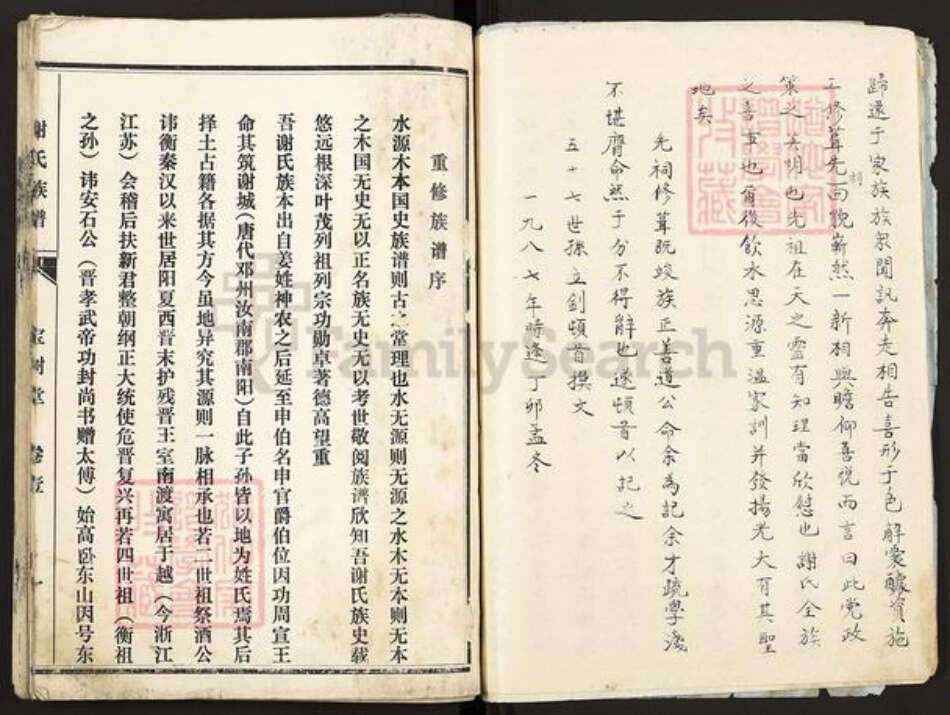 歸遠于家族族衆聞訊奔走相告喜形于色解囊醵資施
工修葺先祠面貌嶄然一新相與瞻仰善説而言曰此党政
策之大明也先祖在天之靈有知理當欣慰也謝氏全族
之喜事也爾後飲水思源重溫家訓并發揚光大有其聖
地矣
先祠修葺既竣族正善道公命余為記余才疏學淺
不堪膺命然于分不得辭也遂頓首以記之
五十七世孫立釗頓首撰文
一九八七年時逢丁卯孟冬
重修族谱序
水源木本国史族谱则古之常理也水无源则无源之水木无本则无本
之木国无史无以正名族无史无以考世敬阅族谱欣知吾谢氏族史载
悠远根深叶茂列祖列宗功勋卓著德高望重
吾谢氏族本出自姜姓神农之后延至申伯名申官爵伯位因功周宣王
命其筑谢城(唐代邓州汝南郡南阳)自此子孙皆以地为姓氏焉其后
择土占籍各据其方今虽地异究其源则一脉相承也若二世祖祭酒公
讳衡秦汉以来世居阳夏西晋末护残晋王室南渡寓居于越(今浙江
江苏)会稽后扶新君整朝纲正大统使危晋复兴再若四世祖(衡祖
之孙)讳安石公(晋孝武帝功封尚书赠太傅)始高卧东山因号东
谢氏族谱 宝树堂 卷壹 一
FamilySearch